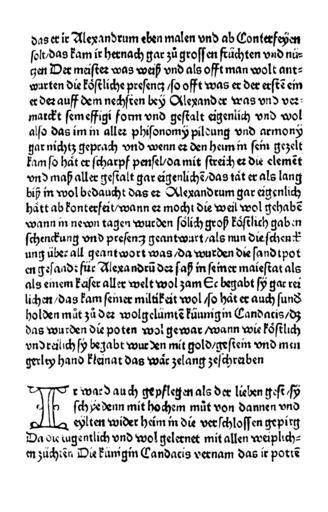 das er ir Alexandrum eben malen vnd ab Conterfeyen
solt/das kam ir hernach gar zů grossen früchten vnd nü-
tzen Der meister was weiß vnd als offt man wolt ant-
wurten die köstliche presentz/so offt was er der erst ein
er der auff dem nechsten bey Alexander was vnd ver-
marckt sein effigi form vnd gestalt eigenlich vnd wol
also das im in aller phisonomy pildung vnd armony
gar nichtz geprach vnd wenn er den heim in sein gezelt
kam so hät er scharpf pensel/da mit streich er die element
vnd maß aller gestalt gar eigenlich/das tät er als lang
biß in wol bedaucht das er Alexandrum gar eigenlich
hätt ab konterfeit/wann er mocht die weil wol gehabē
wann in newn tagen wurden sölich groß köstlich gaben
schenckung vnd presentz geantwurt/als nun die schenck
ung über all geantwort was/da wurden die sandtpot
en gesandt für Alexandrū der saß in seiner maiestat als
als einem kaiser aller welt wol zam Er begabt sy gar rei
lichen/das kam seiner miltikeit wol/so hät er auch sund
holden můt zů der wolgelümtē küingin Candacis/dz
das wurden die poten wol gewar/wann wie köstlich
vnd reilich sy begabt wurden mit gold/gestein vnd men
gerley hand kleinat das wär zelang zeschreiben
Ir ward auch gepflegen als der lieben gest/sy
schyedenn mit hochem můt von dannen vnd
eylten wider heim in die verschlossen gepirg
Da die tugentlich vnd wol gelernet mit allen weiplich-
en züchten Die künigin Candacis vernam das ir potē